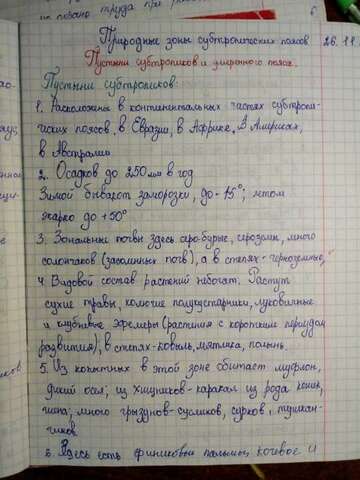 Природные зоны субтропических поясов 26.11
Пустыни субтропиков и умеренного пояса.
Пустыни субтропиков:
1. Расположены в континентальных частях субтропи-
ческих поясов, в Евразии, в Африке, в Америках,
в Австралии
2. Осадков до 250 мм в год
Зимой бывают заморозки, до -15°; летом
жарко до +50°
3. Зональные почвы здесь серо-бурые, серозёмы, много
солончаков (засоленных почв), а в степях-чернозёмные,
4. Видовой состав растений небогат. Растут
сухие травы, колючие полукустарники, луковичные
и клубневые эфемеры (растения с коротким периодом
развития), в степях-ковыль, мятлик, полынь.
5. Из копытных в этой зоне обитает муфлон,
дикий осёл; из хищников-каракал из рода кошек,
много грызунов-сусликов, сурков, тушкан-
чиков.
6. Здесь есть финиковые пальмы, кочевое и